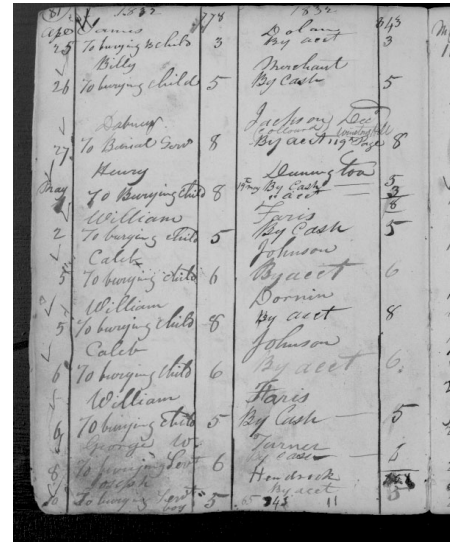 81 1832 $78 1832 $43
James Dolan
Apr 25 To burying 1/2 child 3 By acct 3
Billy Merchant
26 To burying child 5 By Cash 5
Jackson
Colloured 
27 To Burial Serv 8 By acct 119 Page 8
Henry Dunnington
May To Burying Child 8 By Cash 5
acct 3
8
William Faris
2 To burying child 5 By Cash 5
Caleb Johnson
5 To burying child 6 By acct 6
William Dornin
5 To burying child 8 By acct 8
Caleb Johnson
6 To burying child 6 By acct 6
William Faris
6 To burying child 5 By Cash 5
George W. Turner
8 To burying Servt 6 By Cash
Joseph Hendrick
To burying Servt boy 5 By acct 5
65 343 11